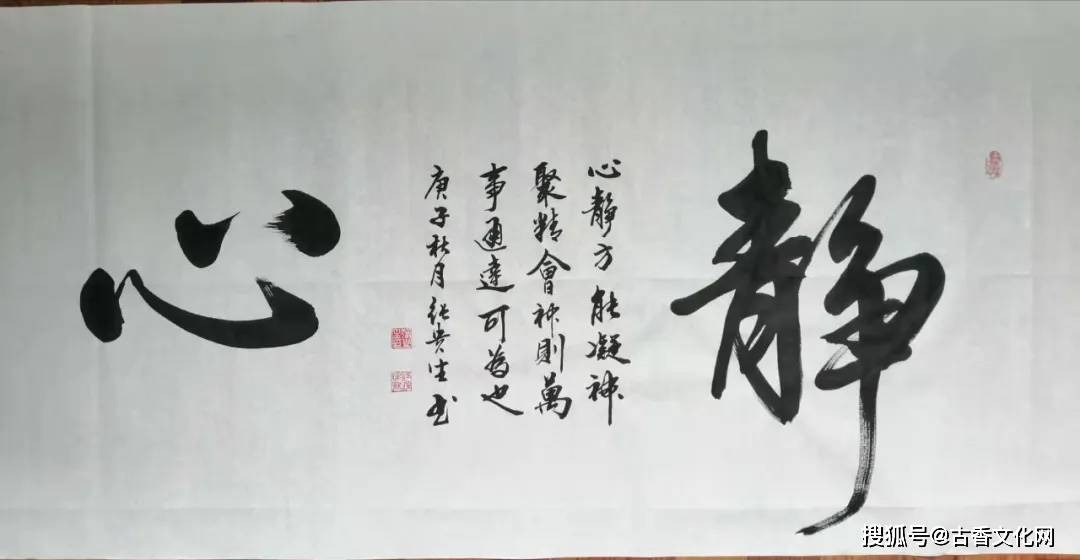 靜
心靜方能凝神
聚精會神則萬
事通達可為也
庚子秋月張貴生书
心
搜狐号@古香文化网